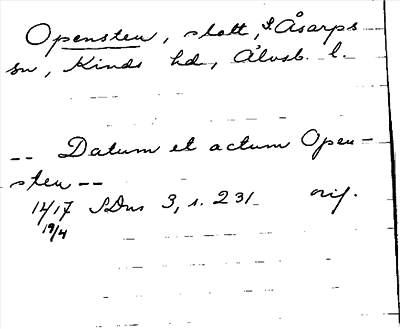 Opensten, slott, S. Åsarps
sn, Kinds hd, Älvsb. l.
-- Datum et actum Open-
sten --
1417 SDns 3, s. 231 orig.
19/4